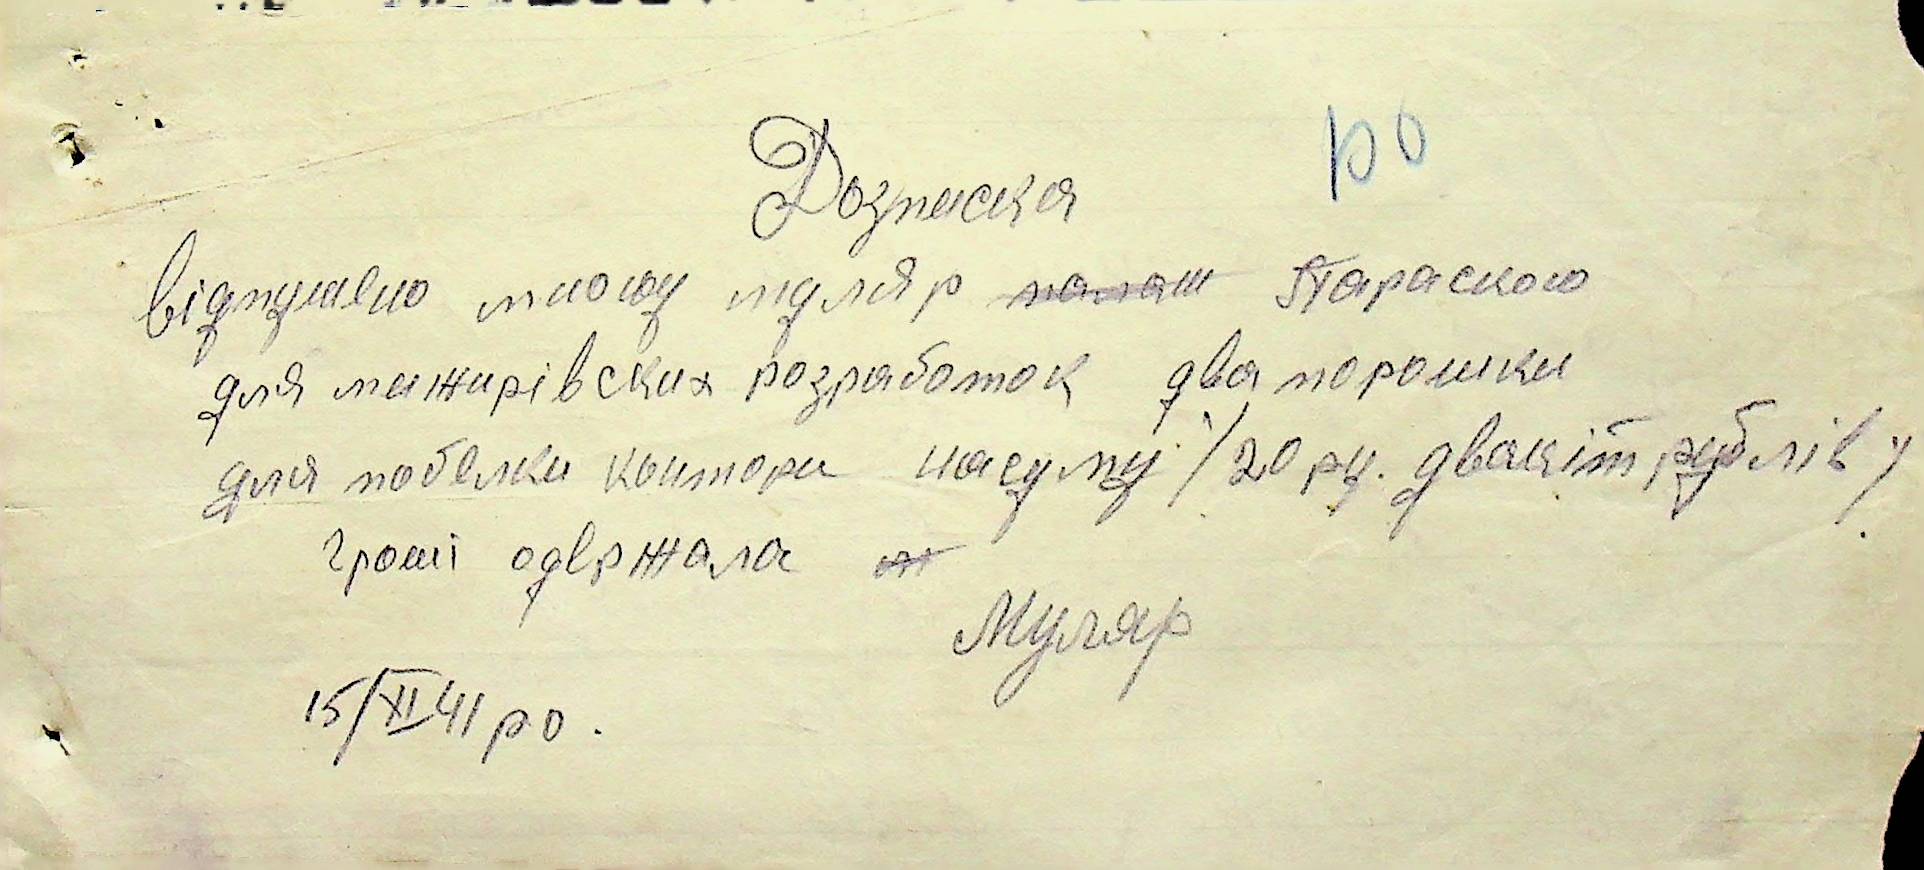 Розписка
Відпущено мною муляр Параскою
для мижирівских розработок два порошки
для побелки контори насуму /20 ру. дваціт рублів/
гроші одержала
Муляр
15/XI 41 ро.